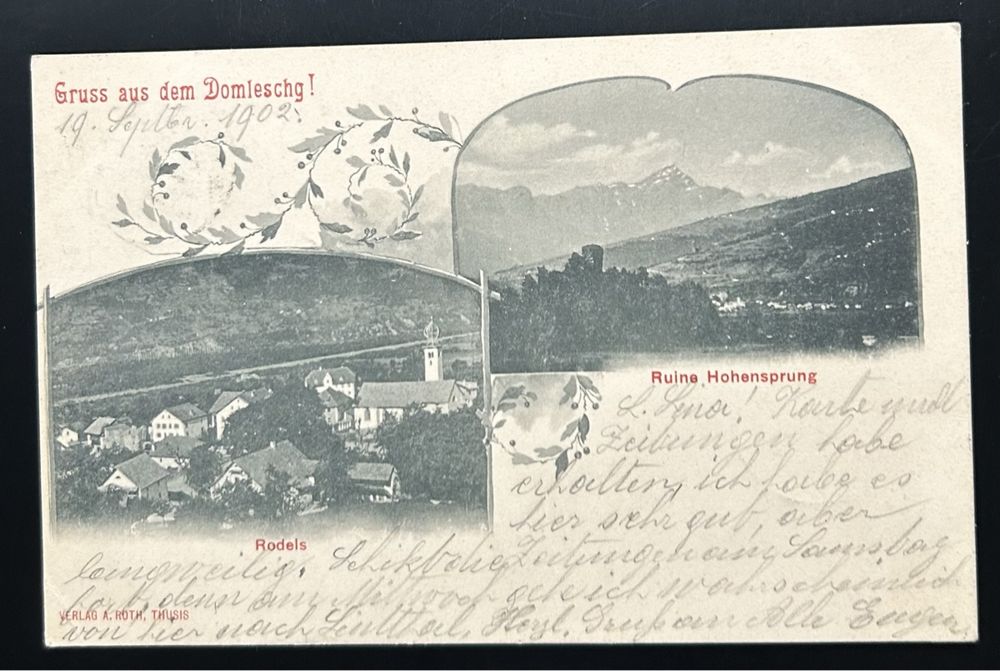 Gruss aus dem Domleschg!
19. Septbr. 1902.
Ruine Hohensprung
L. Lina! Karte und
Zeitungen habe
erhalten, ich habe es
hier sehr gut, aber
Rodels
langweilig. Schikt die Zeitungen am Samstag
denn am Mittwoch geh ich wahrscheinlich
VERLAG A. ROTH, THUSIS
von hier nach Herzl. Gruß an Alle Eugen